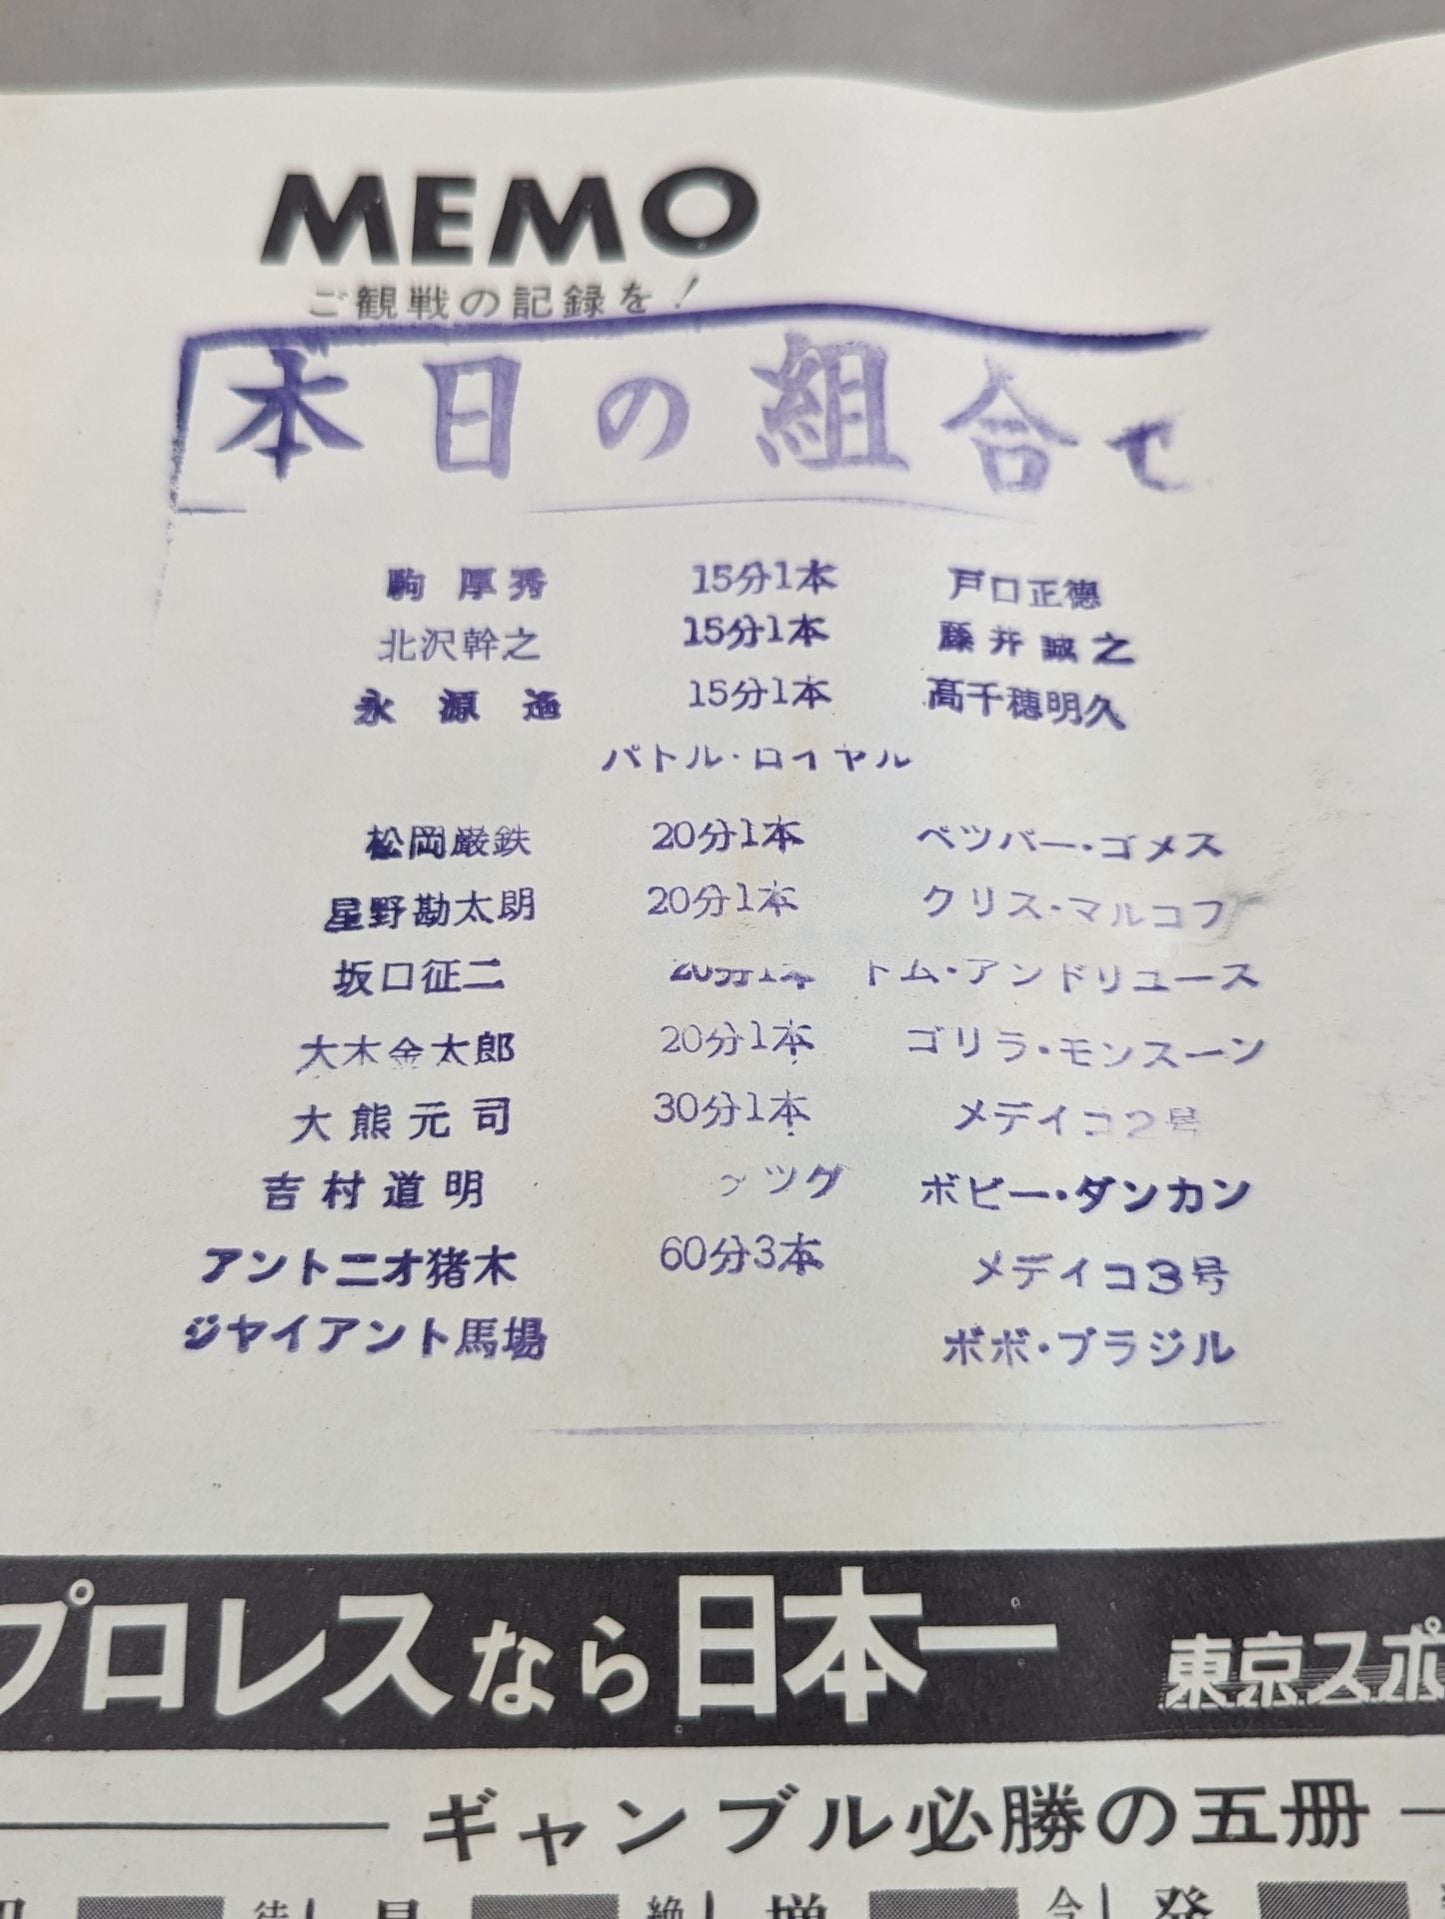 MEMO
ご観戦の記録を!
本日の組合せ
駒 厚秀 15分1本 戸口正徳
北沢幹之 15分1本 藤井誠之
永源遥 15分1本 高千穂明久
バトル・ロイヤル
松岡巌鉄 20分1本 ペツパー・ゴメス
星野勘太朗 20分1本 クリス・マルコフ
坂口征二 20分1本 トム・アンドリユース
大木金太郎 20分1本 ゴリラ・モンスーン
大熊元司 30分1本 メデイコ2号
吉村道明 タツグ ボビー・ダンカン
アントニオ猪木 60分3本 メデイコ3号
ジヤイアント馬場 ボボ・ブラジル
プロレスなら日本一 東京スポ
ギャンブル必勝の五冊